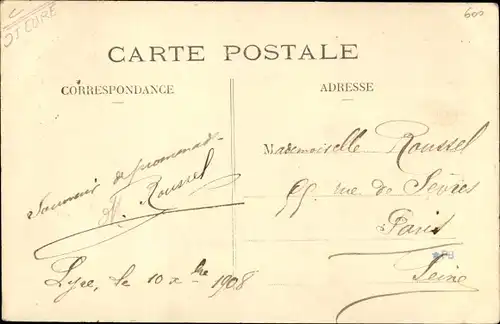 27 EURE
600
CARTE POSTALE
CORRESPONDANCE
ADRESSE
Souvenir de promenade
Roussel
Lyre, le 10 Xbre 1908
Mademoiselle Roussel
55 rue de Sèvres
Paris
Seine